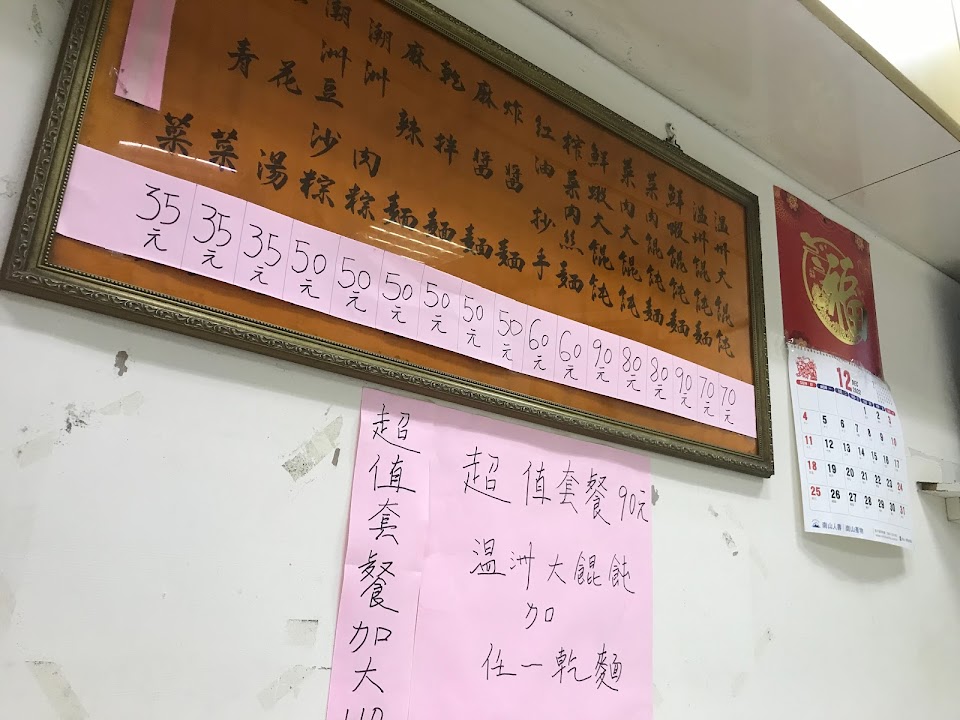 溫州大餛飩 70元
溫州餛飩麵 70元
鮮蝦餛飩麵 90元
菜肉餛飩麵 80元
菜肉大餛飩 80元
鮮蝦大餛飩 90元
榨菜肉絲麵 60元
紅油抄手 60元
炸醬麵 50元
麻醬麵 50元
乾拌麵 50元
麻辣麵 50元
潮洲肉粽 50元
潮洲豆沙粽 50元
花湯 35元
菜 35元
菜 35元
超值套餐加大
超值套餐 90元
溫洲大餛飩
加
任一乾麵
福
12 DEC 2022
1 2 3
4 5 6 7 8 9 10
11 12 13 14 15 16 17
18 19 20 21 22 23 24
25 26 27 28 29 30 31
南山人壽 南山產物